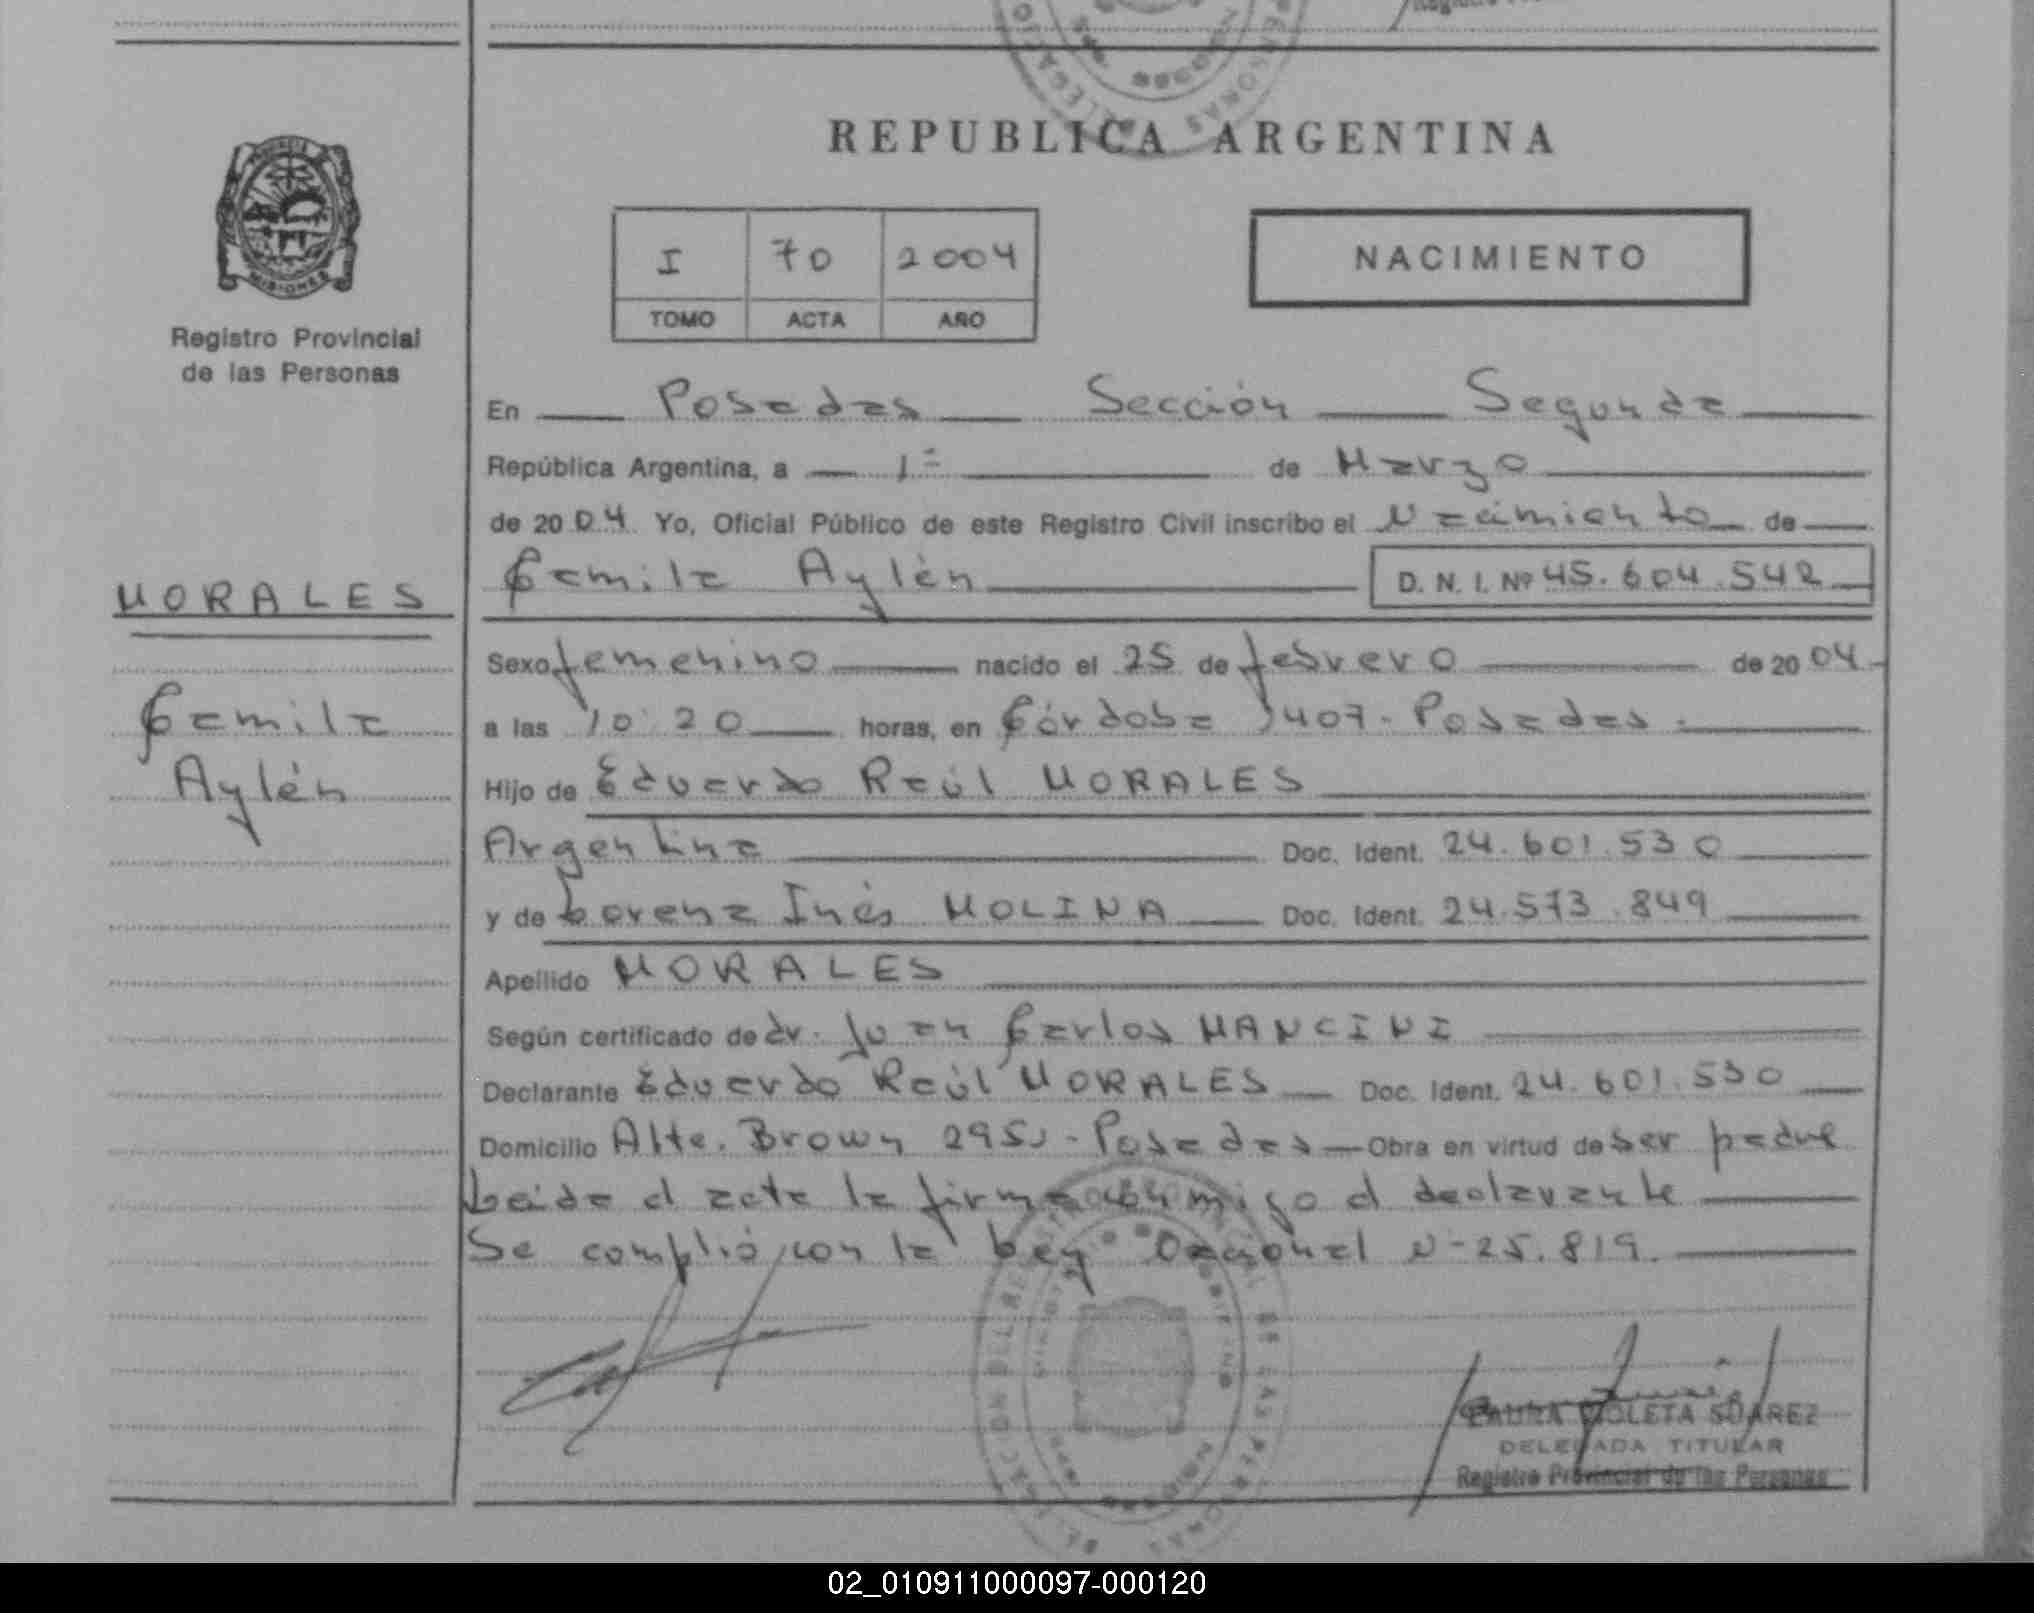 REPUBLICA ARGENTINA
I 70 2004
TOMO ACTA AÑO
NACIMIENTO
PROVINCIA DE
MISIONES
Registro Provincial
de las Personas
En Posadas Sección Segunda
República Argentina, a 1º de Marzo
de 2004 Yo, Oficial Público de este Registro Civil inscribo el Nacimiento de
Camila Aylén D. N. I. Nº 45.604.542
MORALES
Camila
Aylén
Sexo femenino nacido el 25 de febrero de 2004
a las 10:20 horas, en Córdoba 1407 - Posadas.
Hijo de Eduardo Raúl MORALES
Argentina Doc. Ident. 24.601.530
y de Lorena Inés MOLINA Doc. Ident. 24.573.849
Apellido MORALES
Según certificado de dr. Juan Carlos MANCINI
Declarante Eduardo Raúl MORALES Doc. Ident. 24.601.530
Domicilio Alte. Brown - Posadas Obra en virtud de ser padre
Leída el acta la firma conmigo el declarante
Se complió con la Ley Nacional N-25.819.
LAURA VIOLETA SUAREZ
DELEGADA TITULAR
Registro Provincial de las Personas
02_010911000097-000120